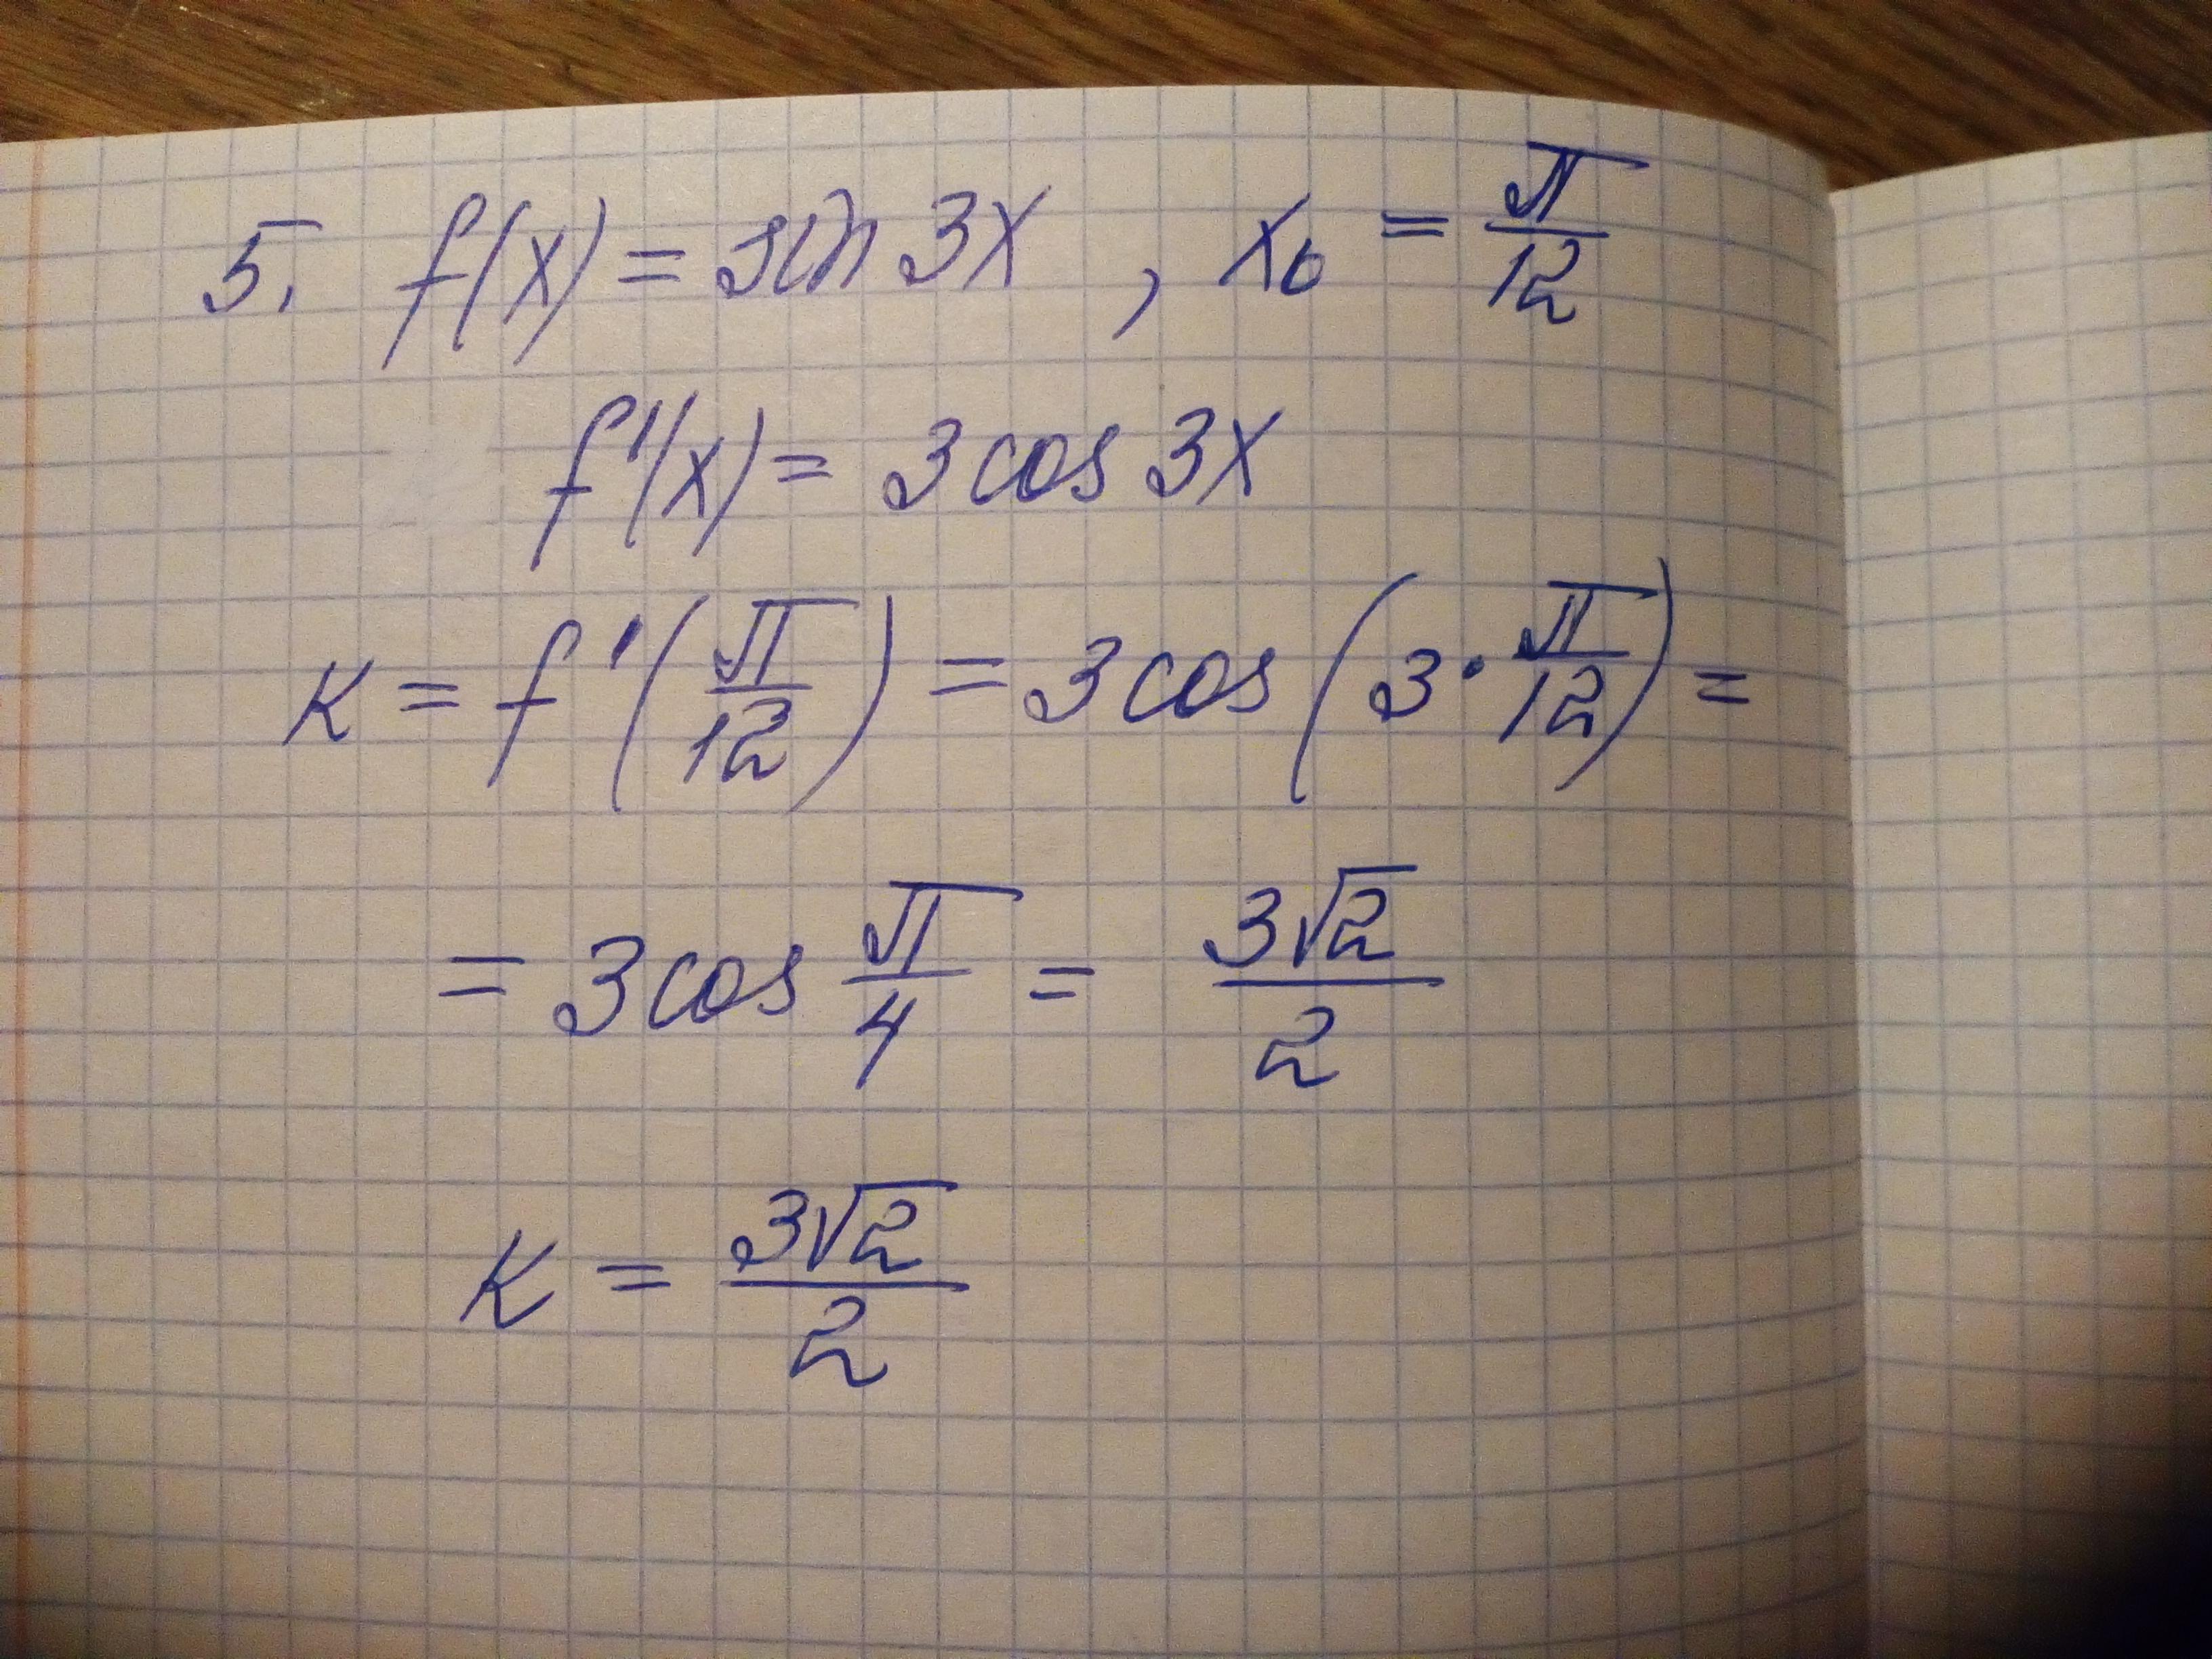 5. f(x) = sin 3x , x₀ = π/12
f'(x) = 3 cos 3x
K = f'(π/12) = 3 cos(3 · π/12) =
= 3 cos π/4 = 3√2/2
K = 3√2/2